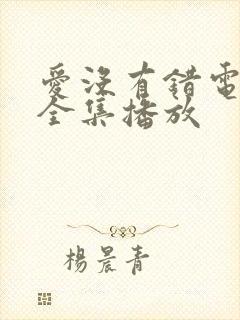 愛沒有錯電
全集播放
楊晨青